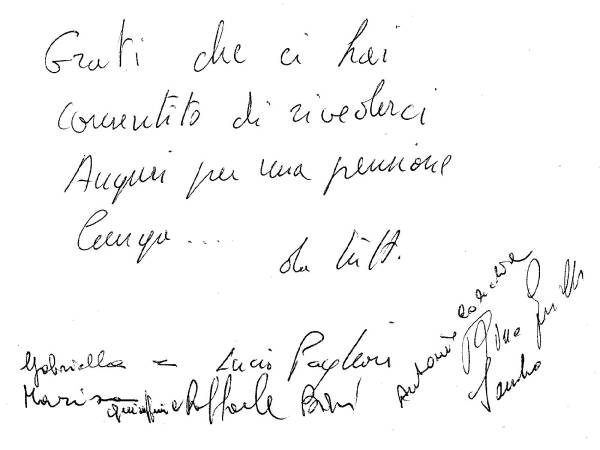 Grati che ci hai
consentito di rivederci
Auguri per una pensione
lunga...
da tutti.
Gabriella - Lucio Paglieri
Marisa Raffaele
Antonio
Sandro